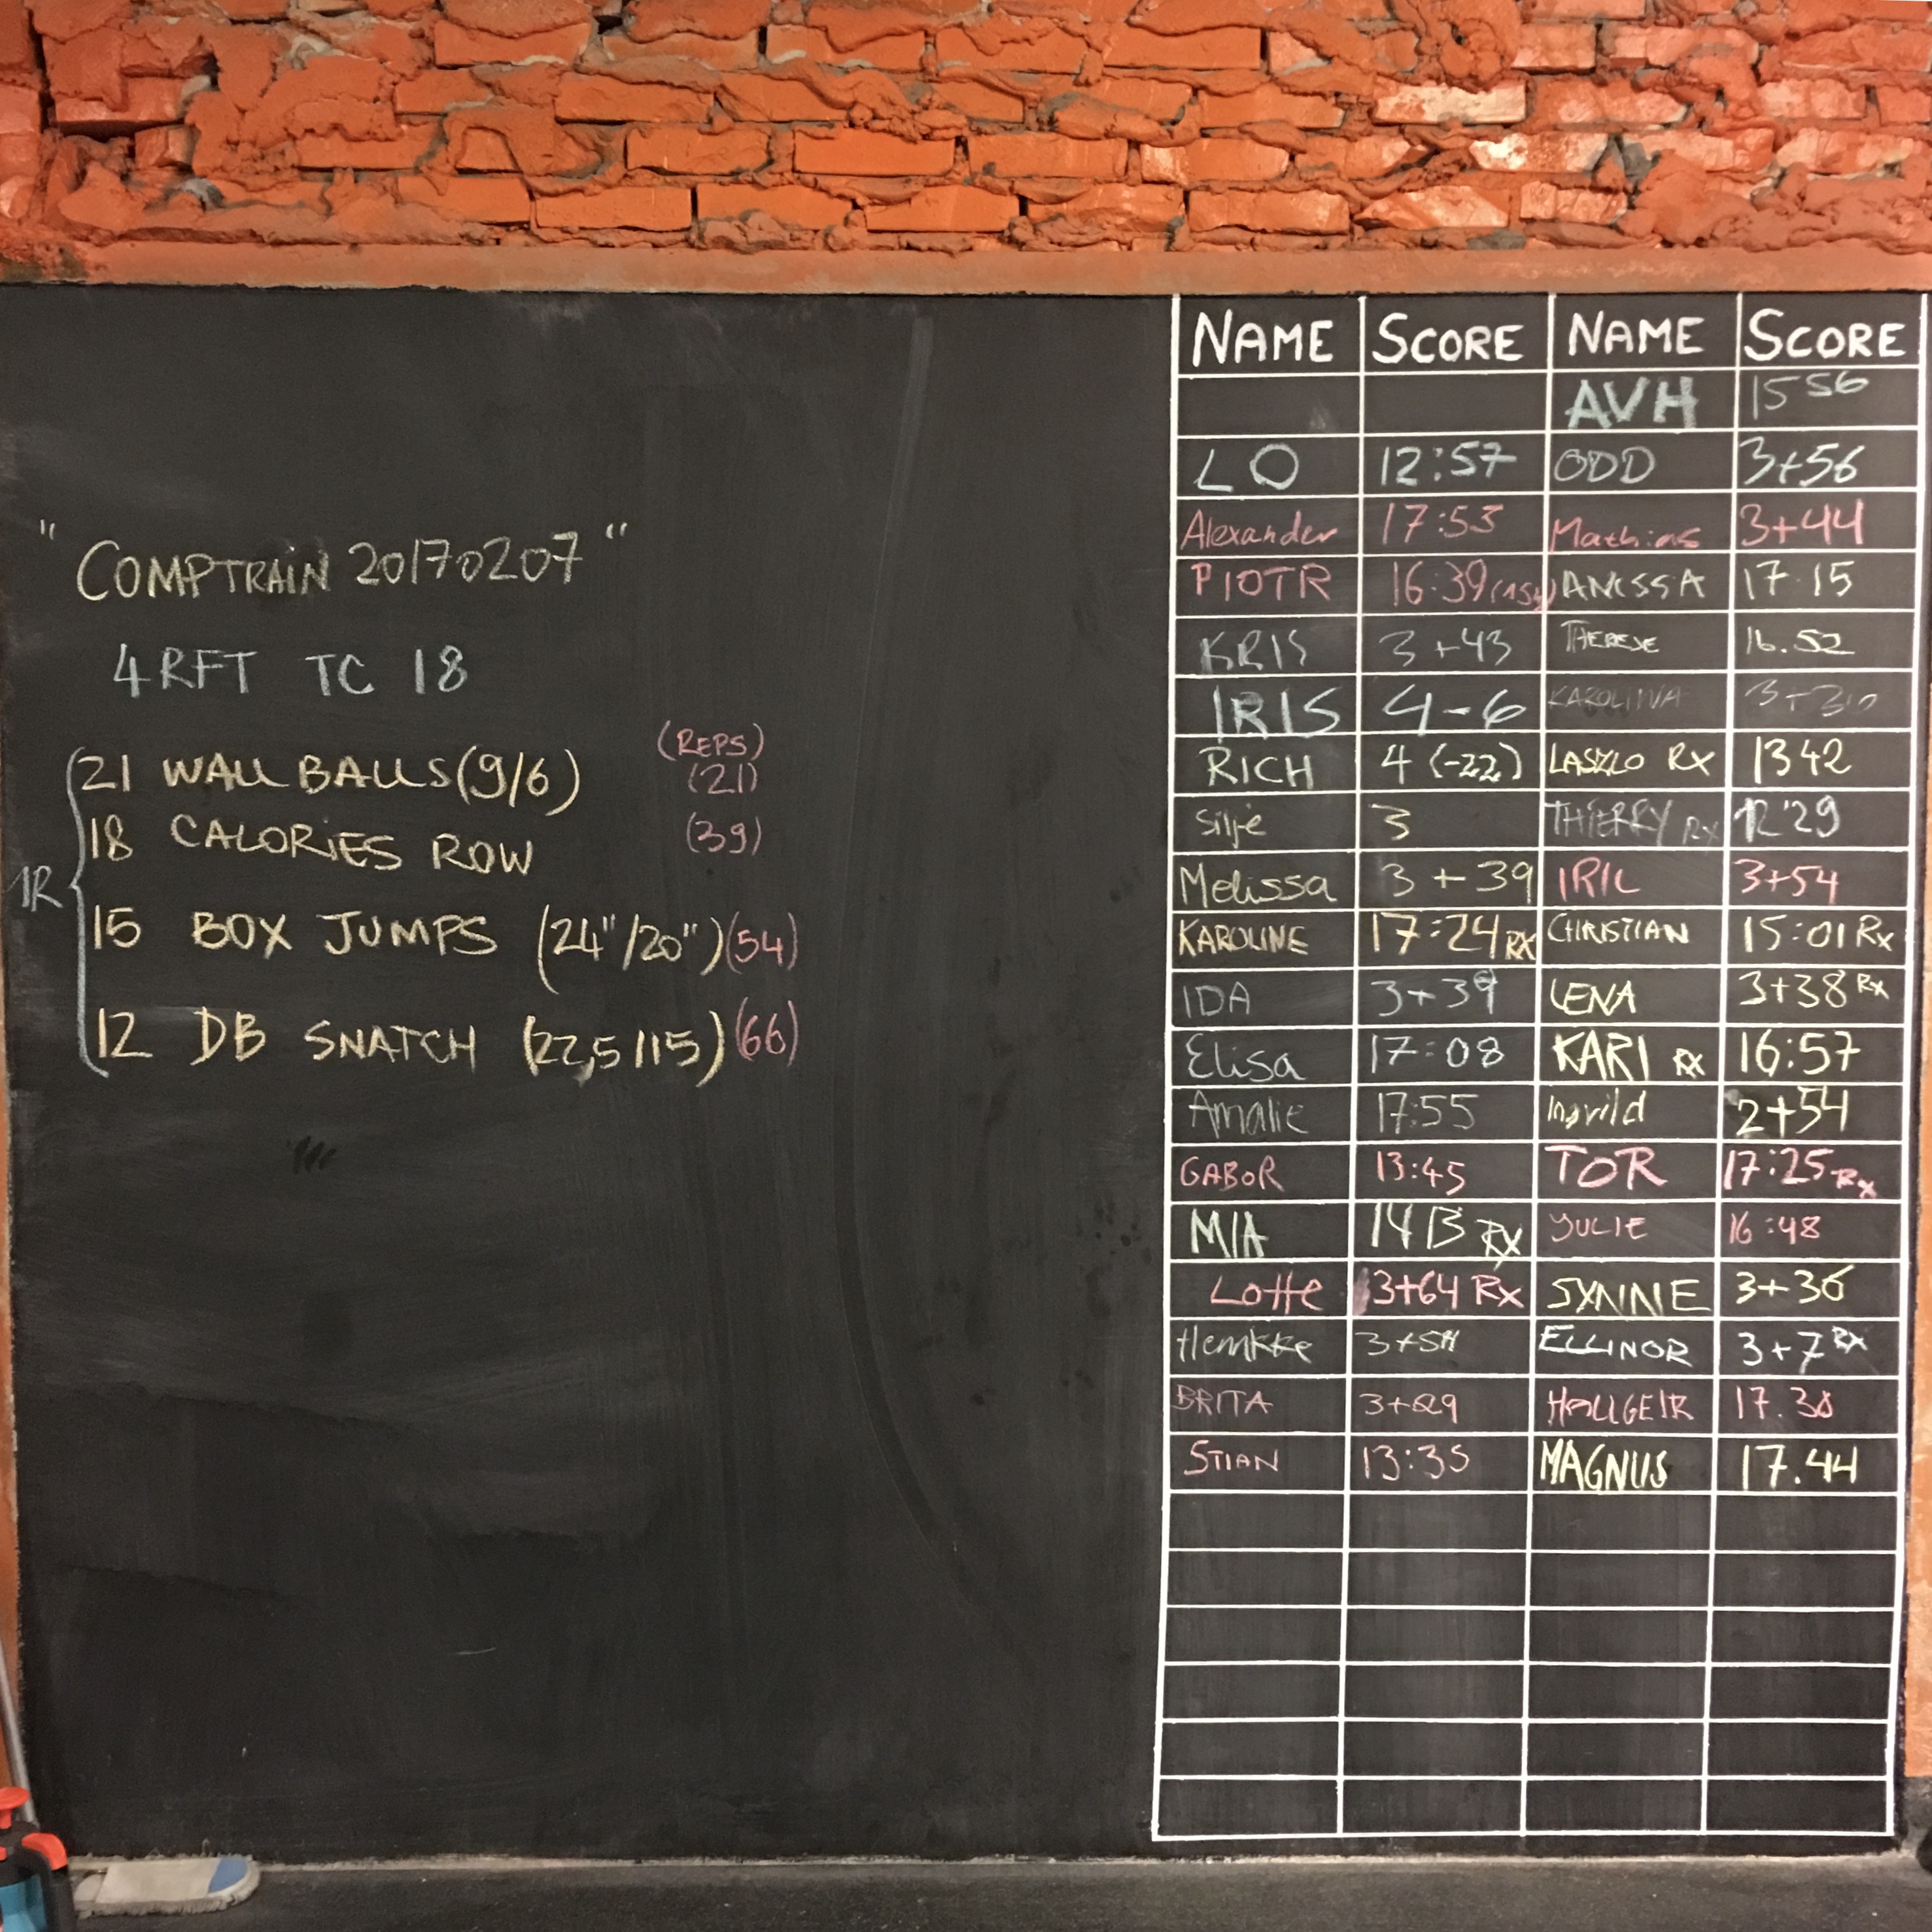 "COMPTRAIN 20170207"
4 RFT TC 18
(REPS)
21 WALL BALLS (9/6) (21)
18 CALORIES ROW (39)
1R
15 BOX JUMPS (24"/20") (54)
12 DB SNATCH (22,5/15) (66)
NAME SCORE NAME SCORE
AVH 15 56
LO 12:57 ODD 3+56
Alexander 17:53 Mathias 3+44
PIOTR 16:39 ANISSA 17.15
KRIS 3+43 THERESE 16.52
IRIS 4-6 KAROLIINA
RICH 4 (-22) LASZLO RX 13 42
Silje 3 THIERRY RX 12'29
Melissa 3+39 IRIL 3+54
KAROLINE 17:24 RX CHRISTIAN 15:01 Rx
IDA 3+39 LENA 3+38 Rx
Elisa 17:08 KARI RX 16:57
Amalie 17:55 Ingvild 2+54
GABOR 13:45 TOR 17:25 Rx
MIA 14 13 RX JULIE 16:48
Lotte 3+64 Rx SYNNE 3+36
3+54 ELLINOR 3+7 RX
BRITA 3+29 HALLGEIR 17.30
STIAN 13:35 MAGNUS 17.44